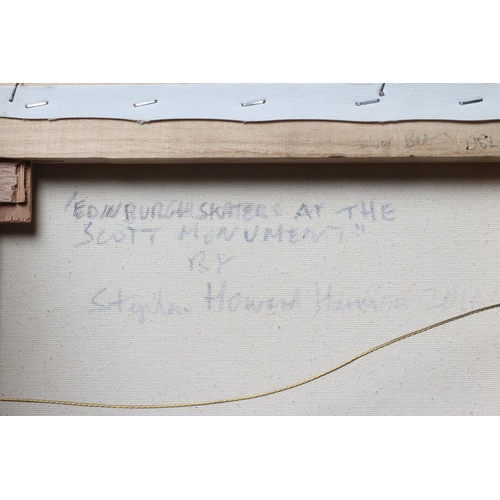 "EDINBURGH SKATERS AT THE
SCOTT MONUMENT"
BY
Stephen Howard Harrison